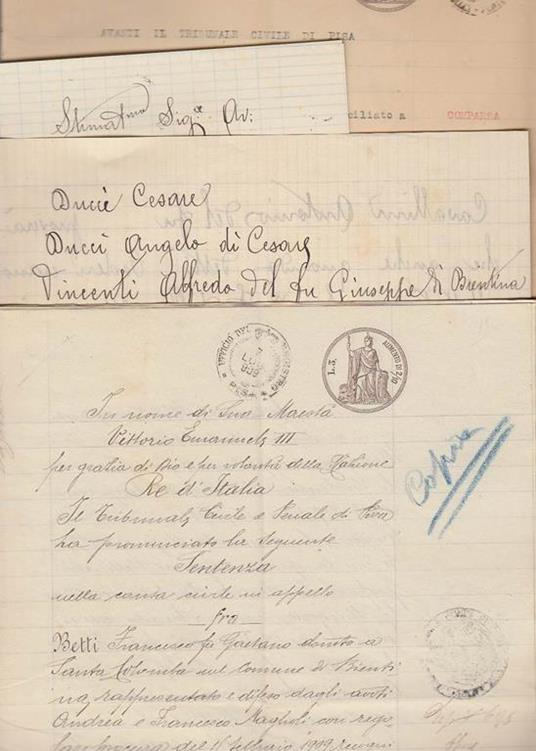 AVANTI IL TRIBUNALE CIVILE DI PISA
ciliato a COMPARSA
Sig.ʳ Av:
Ducci Cesare
Ducci Angelo di Cesare
Vincenti Alfredo del fu Giuseppe di Brentina
UFFICIO DEL REGISTRO
PISA
L. 3.
AUMENTO DI 2/10
In nome di Sua Maestà
Vittorio Emanuele III
per grazia di Dio e per volontà della Nazione
Re d'Italia
Copia
Il Tribunale Civile e Penale di Pisa
ha pronunciato la seguente
Sentenza
nella causa civile in appello
fra
Betti Francesco fu Gaetano domto a
Santa Colomba nel Comune di Bienti
na, rappresentato e difeso dagli avoti
Andrea e Francesco Magholi con rego
lare procura del 11 febbraio 1909